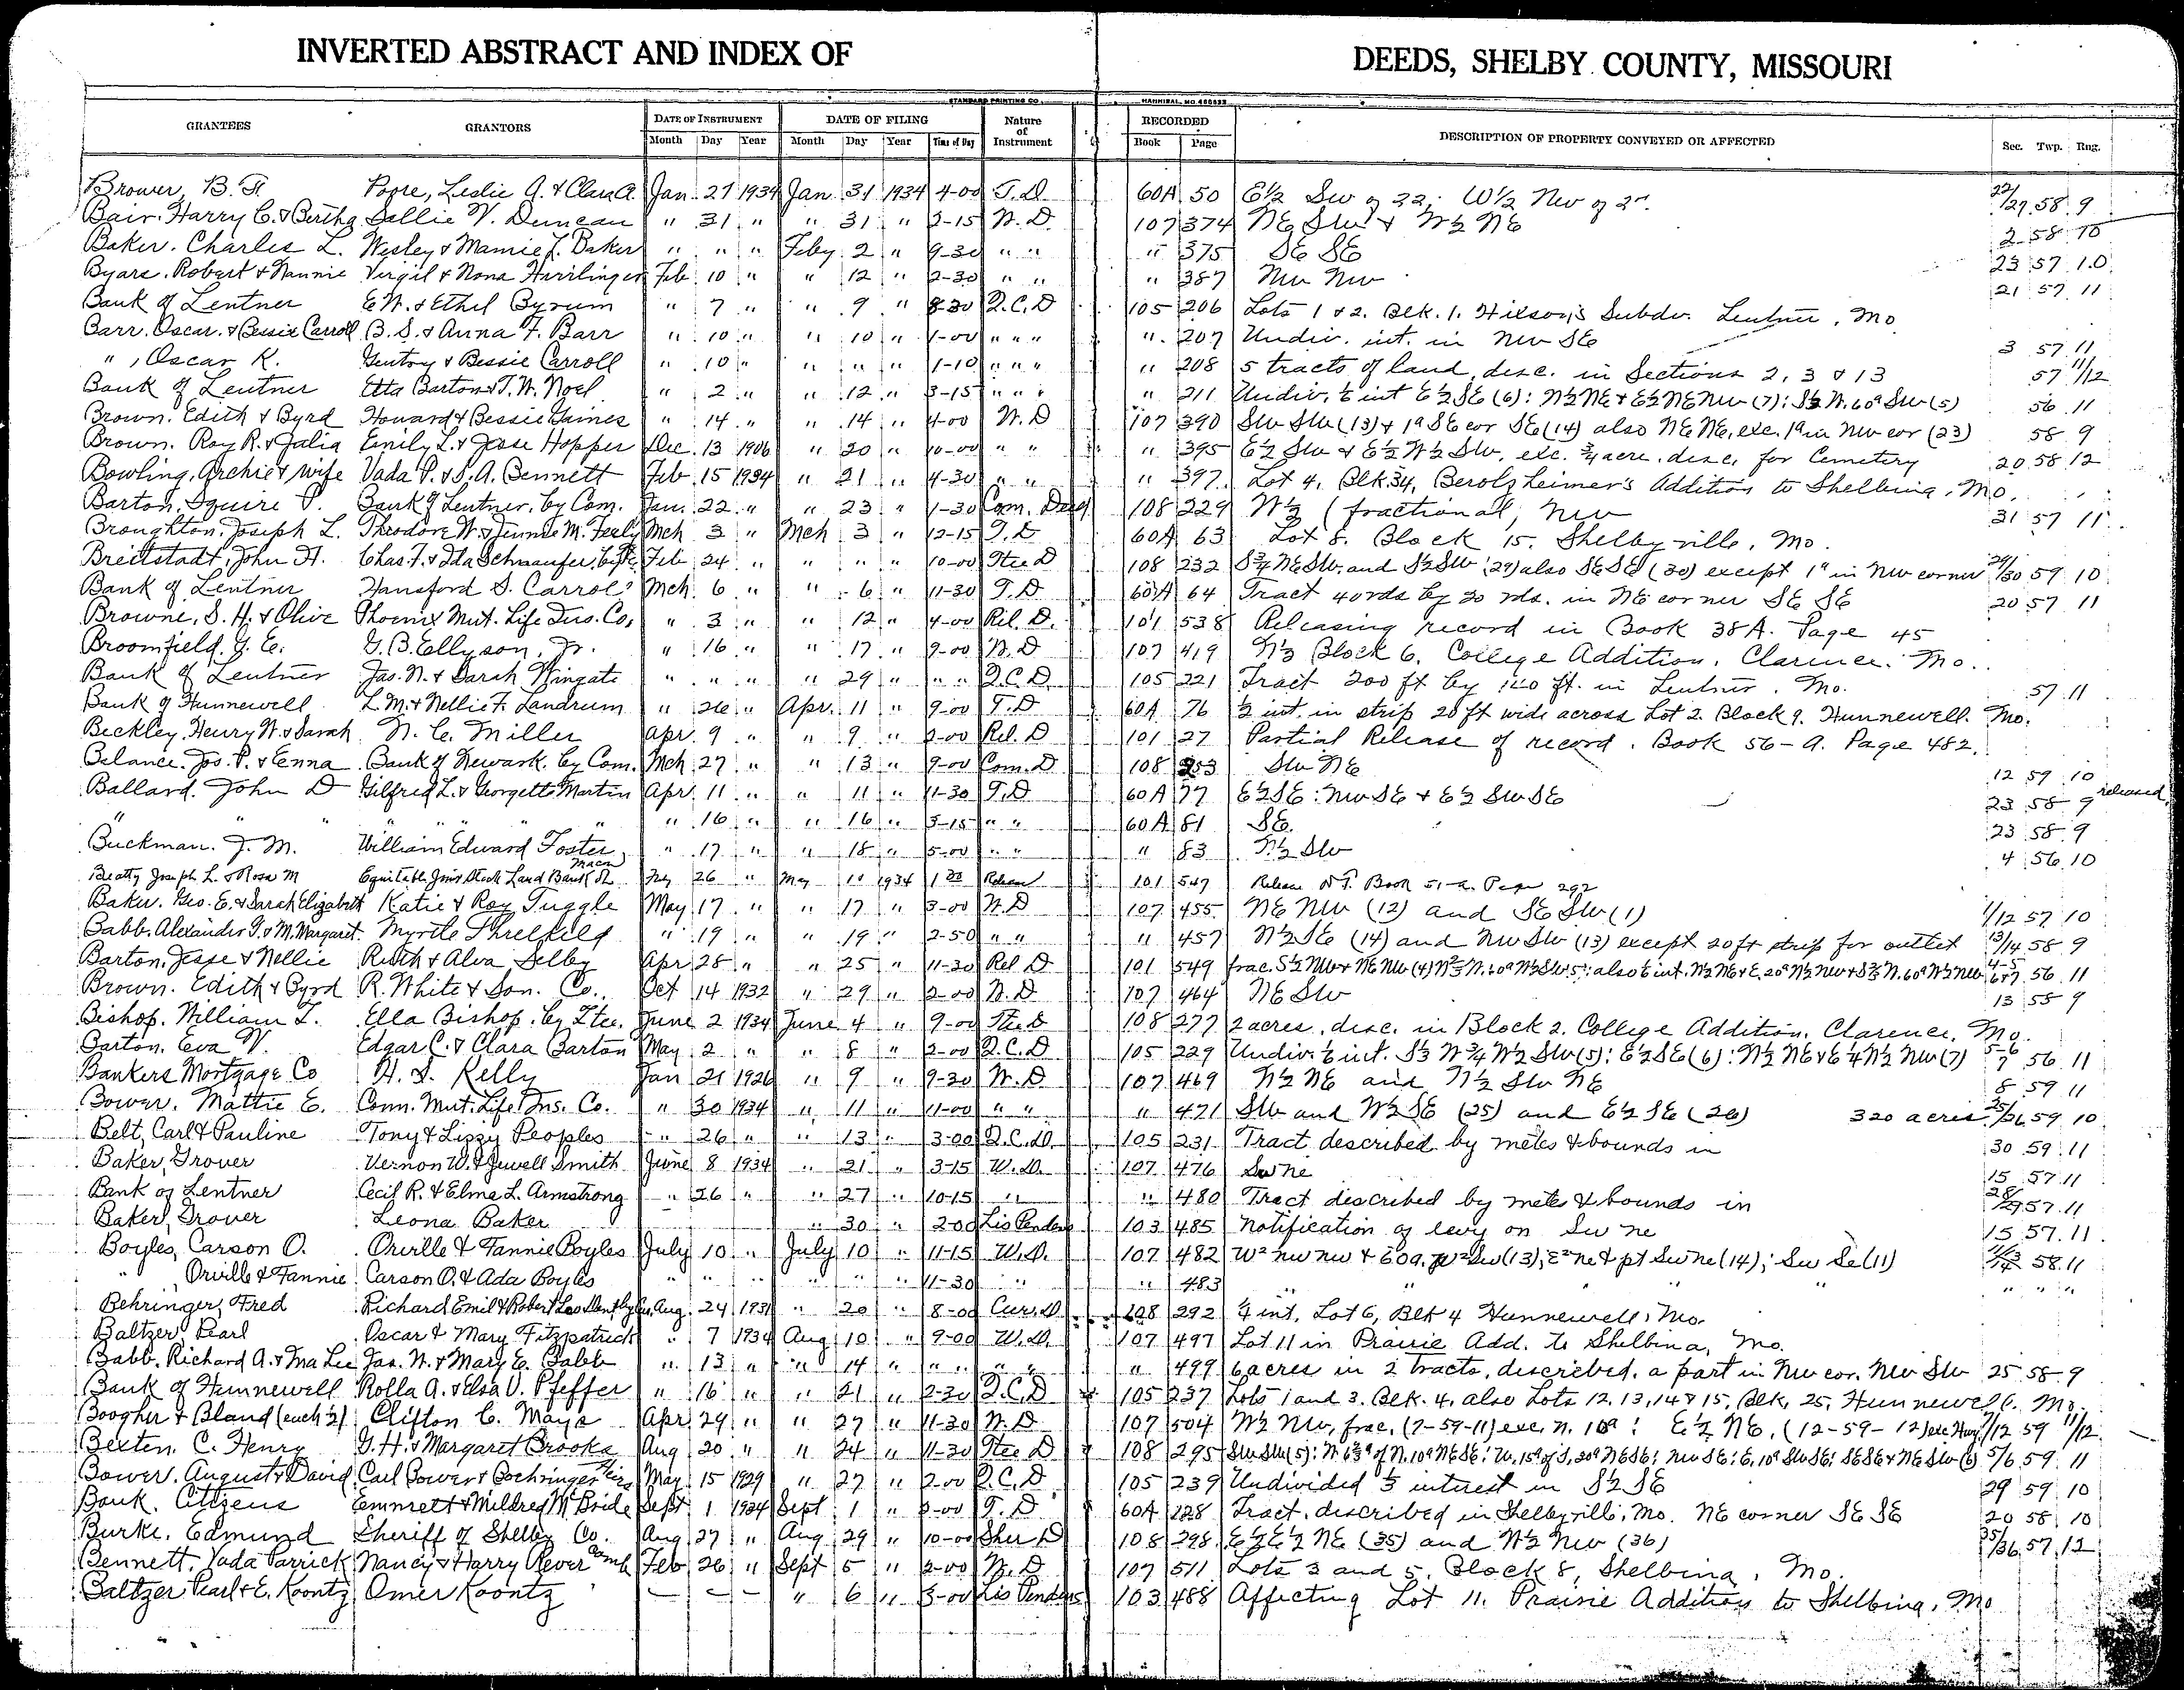 INVERTED ABSTRACT AND INDEX OF DEEDS, SHELBY COUNTY, MISSOURI
STANDARD PRINTING CO. HANNIBAL, MO.
GRANTEES GRANTORS DATE OF INSTRUMENT DATE OF FILING Nature of Instrument RECORDED DESCRIPTION OF PROPERTY CONVEYED OR AFFECTED
Month Day Year Month Day Year Time of Day Book Page Sec. Twp. Rng.
Brower, B. F. Poore, Leslie A. & Clara A. Jan. 27 1934 Jan. 31 1934 4-00 T.D. 60A 50 E½ SW of 22; W½ NW of 27. 22/27 58 9
Bair, Harry C. & Bertha Sallie V. Duncan " 31 " " 31 " 2-15 W.D 107 374 NE SW & W½ NE 2 58 10
Baker, Charles L. Wesley & Mamie L. Baker " " " Feby 2 " 9-30 " " " 375 SE SE 23 57 10
Byars, Robert & Nannie Virgil & Nona Hurrlinger Feb 10 " " 12 " 2-30 " " " 387 NW NW 21 57 11
Bank of Lentner E.W. & Ethel Byrum " 7 " " 9 " 8-30 Q.C.D 105 206 Lots 1 & 2. Blk. 1. Wilson's Subdv. Lentner, Mo
Barr, Oscar & Bessie Carroll B. S. & Anna F. Barr " 10 " " 10 " 1-00 " " " " 207 Undiv. int. in NW SE 3 57 11
" , Oscar K. Gentry & Bessie Carroll " 10 " " " " 1-10 " " " " 208 5 tracts of land, desc. in Sections 2, 3 & 13 57 11/12
Bank of Lentner Etta Barton & T. W. Noel " 2 " " 12 " 3-15 " " " " 211 Undiv. ⅙ int E½ SE (6): N½ NE & E½ NE NW (7): S⅓ N. 60ª SW (5) 56 11
Brown, Edith & Byrd Howard & Bessie Gaines " 14 " " 14 " 4-00 W.D 107 390 SW SW (13) & 1ª SE cor SE (14) also NE NE, exc. 1ª in NW cor (23) 58 9
Brown, Roy R. & Julia Emily L. & Jesse Hopper Dec. 13 1906 " 20 " 10-00 " " " 395 E½ SW & E½ W½ SW, exc. ¾ acre, desc. for Cemetery 20 58 12
Bowling, Archie & wife Vada P. & S. A. Bennett Feb 15 1934 " 21 " 4-30 " " " 397 Lot 4, Blk. 34, Berolzheimer's Addition to Shelbina, Mo.
Barton, Squire P. Bank of Lentner, by Com. Jan. 22 " " 23 " 1-30 Com. Deed 108 229 W½ (fractional) NW 31 57 11
Broughton, Joseph L. Theodore W. & Jennie M. Feely Mch 3 " Mch 3 " 12-15 T.D 60A 63 Lot 8. Block 15. Shelbyville, Mo.
Breitstadt, John H. Chas. F. & Ida Schmaufer, by Tr. Feb 24 " " " " 10-00 Stee D 108 232 S¾ NE SW, and S½ SW (29) also SE SE (30) except 1ª in NW corner 29/30 59 10
Bank of Lentner Hansford S. Carroll Mch. 6 " " 6 " 11-30 T.D 60A 64 Tract 40 rds by 20 rds. in NE corner SE SE 20 57 11
Browne, S. H. & Olive Phoenix Mut. Life Ins. Co. " 3 " " 12 " 4-00 Rel. D. 101 538 Releasing record in Book 38A. Page 45
Broomfield, G. E. G. B. Ellyson, Jr. " 16 " " 17 " 9-00 W.D 107 419 N½ Block 6. College Addition. Clarence. Mo.
Bank of Lentner Jas. N. & Sarah Wingate " " " " 29 " " " Q.C.D. 105 221 Tract 200 ft by 120 ft. in Lentner. Mo. 57 11
Bank of Hunnewell L.M. & Nellie F. Landrum " 26 " Apr. 11 " 9-00 T.D 60A 76 ½ int. in strip 20 ft wide across Lot 2. Block 9. Hunnewell. Mo.
Beckley, Henry W. & Sarah N. C. Miller Apr. 9 " " 9 " 2-00 Rel. D 101 27 Partial Release of record. Book 56-A. Page 482.
Belance, Jos. P. & Enna Bank of Newark, by Com. Mch 27 " " 13 " 9-00 Com. D 108 253 SW NE 12 59 10
Ballard, John D Gilfred L. & Georgette Martin Apr. 11 " " 11 " 11-30 T.D 60A 77 E½ SE: NW SE & E½ SW SE 23 58 9 released
" " " " " 16 " " 16 " 3-15 " " 60A 81 SE. 23 58 9
Buckman, J. M. William Edward Foster " 17 " " 18 " 5-00 " " " 83 N½ SW 4 56 10
Beatty Joseph L. & Rosa M Equitable Joint Stock Land Bank 26 " May 11 1934 Release 101 547 Release D.T. Book 51-A. Page 292
Baker, Geo. E. & Sarah Elizabeth Katie & Roy Tuggle May 17 " " 17 " 3-00 W.D 107 455 NE NW (12) and SE SW (1) 1/12 57 10
Babb, Alexander G. & M. Margaret. Myrtle Threlkeld " 19 " " 19 " 2-50 " " " 457 N½ SE (14) and NW SW (13) except 20 ft strip for outlet 13/14 58 9
Barton, Jesse & Nellie Ruth & Alva Selby Apr 28 " " 25 " 11-30 Rel D 101 549 frac. S½ NW & NE NW (4) N⅔ N. 60ª W½ SW 5: also ⅙ int. N½ NE & E. 20ª N½ NW & S⅔ N. 60ª W½ NW 56 11
Brown, Edith & Byrd R. White & Son. Co. Oct 14 1932 " 29 " 2-00 W.D 107 464 NE SW 13 58 9
Bishop, William T. Ella Bishop, by Ttee. June 2 1934 June 4 " 9-00 Ttee D 108 277 2 acres, desc. in Block 2. College Addition. Clarence, Mo.
Barton, Eva V. Edgar C. & Clara Barton May 2 " " 8 " 2-00 Q.C.D 105 229 Undiv. ⅙ int. S⅓ N ¾ W½ SW (5): E½ SE (6): N½ NE & E¼ N½ NW (7) 5-6/7 56 11
Bankers Mortgage Co H. S. Kelly Jan 21 1926 " 9 " 9-30 W.D 107 469 N½ NE and N½ SW NE 8 59 11
Bower, Mattie E. Conn. Mut. Life Ins. Co. " 30 1934 " 11 " 11-00 " " " 471 SW and W½ SE (25) and E½ SE (26) 320 acres 25/26 59 10
Belt, Carl & Pauline Tony & Lizzy Peoples " 26 " " 13 " 3-00 Q.C.D. 105 231 Tract described by metes & bounds in 30 59 11
Baker, Grover Vernon W. & Jewell Smith June 8 1934 " 21 " 3-15 W.D. 107 476 Sw ne 15 57 11
Bank of Lentner Cecil R. & Elma L. Armstrong " 26 " " 27 " 10-15 " " 480 Tract described by metes & bounds in 28/29 57 11
Baker, Grover Leona Baker " 30 " 2-00 Lis Pendens 103 485 Notification of levy on Sw ne 15 57 11
Boyles, Carson O. Orville & Fannie Boyles July 10 " July 10 " 11-15 W.D. 107 482 W² nw nw & 60a. W² Sw (13); E² ne & pt Sw ne (14); Sw Se (11) 11/13/14 58 11
" Orville & Fannie Carson O. & Ada Boyles " " " " " " 11-30 " " 483 " " " " "
Behringer, Fred Richard Emil & Robert Leo Dent by Cu. Aug. 24 1931 " 20 " 8-00 Cur. D. 108 292 ¼ int. Lot 6, Blk 4 Hunnewell, Mo.
Baltzer, Pearl Oscar & Mary Fitzpatrick " 7 1934 Aug 10 " 9-00 W.D. 107 497 Lot 11 in Prairie Add. to Shelbina, Mo.
Babb, Richard A. & Ina Lee Jas. W. & Mary E. Babb " 13 " " 14 " " " " " " 499 6 acres in 2 tracts, described, a part in NW cor. NW SW 25 58 9
Bank of Hunnewell Rolla A. & Elsa V. Pfeffer " 16 " " 21 " 2-30 Q.C.D 105 237 Lots 1 and 3. Blk. 4, also Lots 12, 13, 14 & 15, Blk, 25, Hunnewell. Mo.
Boogher & Bland (each ½) Clifton C. Maya Apr 24 " " 27 " 11-30 W.D 107 504 W½ NW, frac. (7-59-11) exc. N. 10ª: E½ NE. (12-59-12) exc Hwy 7/12 59 11/12
Bexten, C. Henry G. H. & Margaret Brooks Aug 20 " " 24 " 11-30 Ttee D 108 295 SW SW (5): N. 6⅔ª of N. 10ª NE SE: W. 15ª of S. 20ª NE SE: NW SE: E. 10ª SW SE: SE SE & NE SW (6) 5/6 59 11
Bower, August & David Carl Bower & Boehringer Heirs May 15 1929 " 27 " 2-00 Q.C.D 105 239 Undivided ⅓ interest in S½ SE 29 59 10
Bank, Citizens Emmett & Mildred McBride Sept 1 1934 Sept 1 " 3-00 T.D 60A 128 Tract, described in Shelbyville, Mo. NE corner SE SE 20 58 10
Burke, Edmund Sheriff of Shelby Co. Aug 27 " Aug 29 " 10-00 Sher D 108 298 E½ E½ NE (35) and W½ NW (36) 35/36 57 12
Bennett, Vada Parrick Nancy & Harry Rever Comb Feb 26 " Sept 5 " 2-00 W.D 107 511 Lots 3 and 5, Block 8, Shelbina, Mo.
Baltzer Pearl & E. Koontz Omer Koontz — — — " 6 " 3-00 Lis Pendens 103 488 Affecting Lot 11. Prairie Addition to Shelbina, Mo